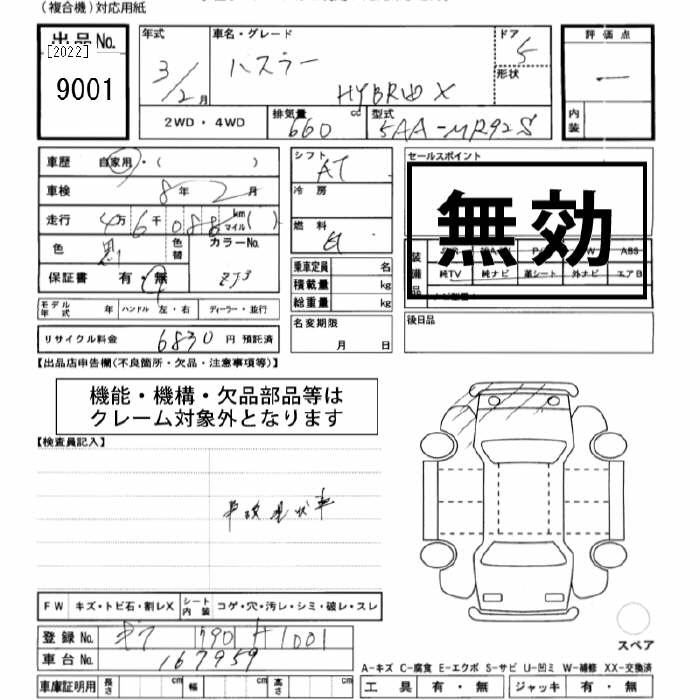 (複合機)対応用紙
出品 No.
[2022]
9001
年式
3/2月
車名・グレード
ハスラー
HYBRID X
ドア
5
形状
評価点
—
内装
2WD・4WD
排気量
660 cc
型式
5AA-MR92S
車歴 自家用・( )
車検 8年2月
走行 4万6千088 km マイル ( )
色 黒
色替
カラーNo.
ZJ3
保証書 有・無
モデル年式 年 ハンドル 左・右 ディーラー・並行
リサイクル料金 6830 円 預託済
シフト
AT
冷房
燃料
乗車定員 名
積載量 kg
総重量 kg
名変期限
月 日
セールスポイント
無効
装備品
ABS
純TV 純ナビ 革シート 外ナビ エアB
後日品
【出品店申告欄(不良箇所・欠品・注意事項等)】
機能・機構・欠品部品等は
クレーム対象外となります
【検査員記入】
事故現状車
FW キズ・トビ石・割レX シート内装 コゲ・穴・汚レ・シミ・破レ・スレ
登録 No.
車台 No. 167959
車庫証明用 長さ cm 幅 cm 高さ cm
スペア
A-キズ C-腐食 E-エクボ S-サビ U-凹ミ W-補修 XX-交換済
工具 有・無 ジャッキ 有・無